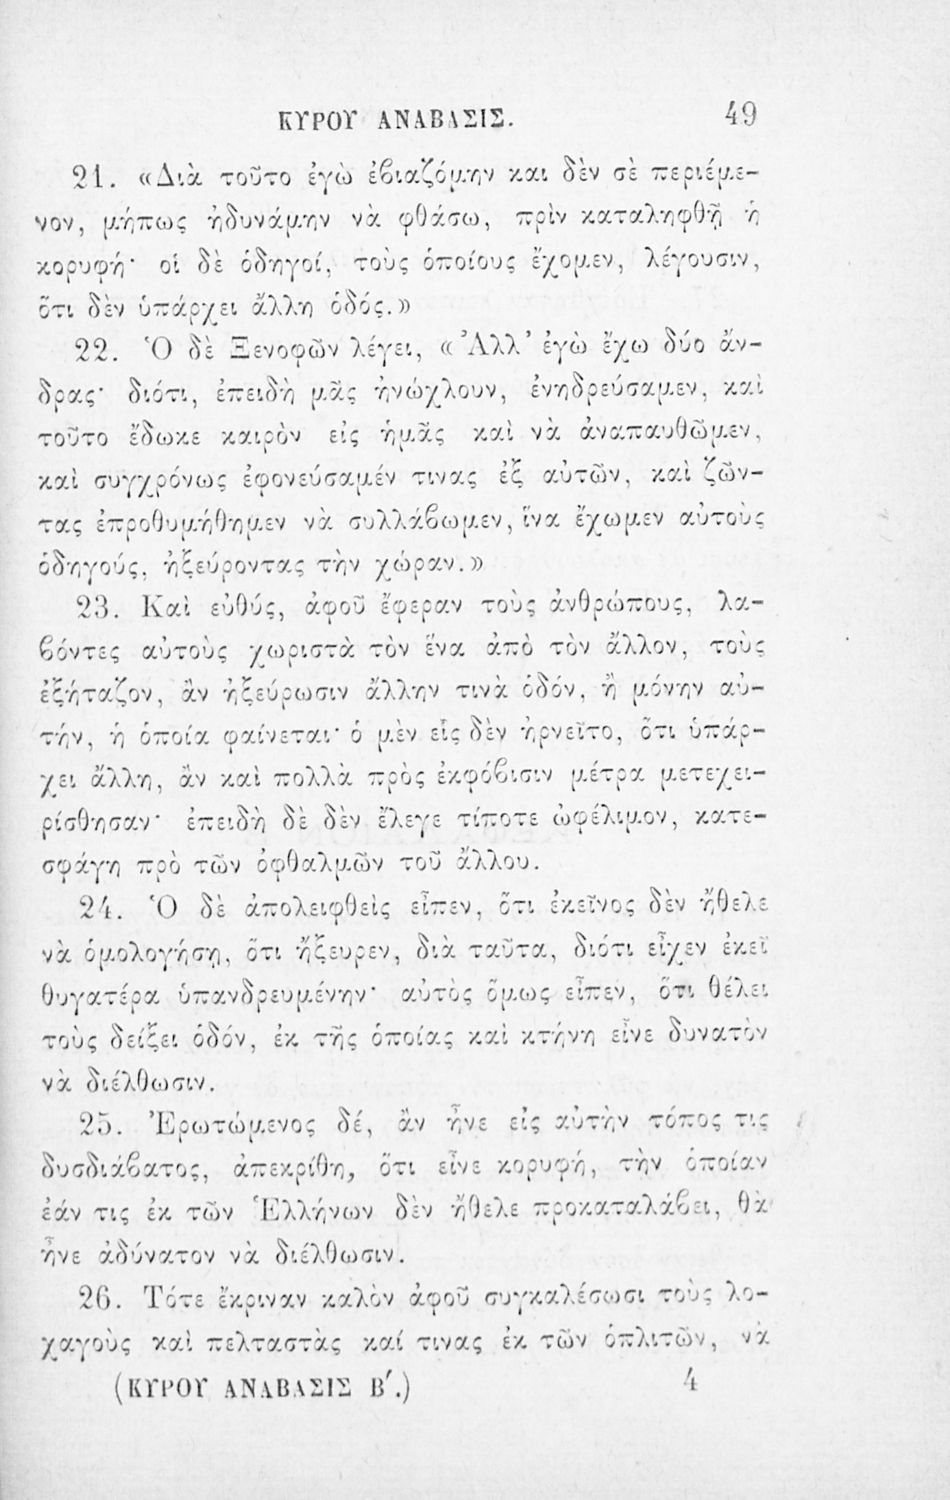 ΚΥΡΟΥ ΑΝΑΒΑΣΙΣ. 49
21. «Διὰ τοῦτο ἐγὼ ἐβιαζόμην και δὲν σὲ περιέμε-
νον, μήπως ἠδυνάμην νὰ φθάσω, πρὶν καταληφθῇ ἡ
κορυφή· οἱ δὲ ὁδηγοί, τοὺς ὁποίους ἔχομεν, λέγουσιν,
ὅτι δὲν ὑπάρχει ἄλλη ὁδός.»
22. Ὁ δὲ Ξενοφῶν λέγει, «Ἀλλ' ἐγὼ ἔχω δύο ἄν-
δρας· διότι, ἐπειδὴ μᾶς ἠνώχλουν, ἐνηδρεύσαμεν, καὶ
τοῦτο ἔδωκε καιρὸν εἰς ἡμᾶς καὶ νὰ ἀναπαυθῶμεν,
καὶ συγχρόνως ἐφονεύσαμέν τινας ἐξ αὐτῶν, καὶ ζῶν-
τας ἐπροθυμήθημεν νὰ συλλάβωμεν, ἵνα ἔχωμεν αὐτοὺς
ὁδηγούς, ἠξεύροντας τὴν χώραν.»
23. Καὶ εὐθύς, ἀφοῦ ἔφεραν τοὺς ἀνθρώπους, λα-
βόντες αὐτοὺς χωριστὰ τὸν ἕνα ἀπὸ τὸν ἄλλον, τοὺς
ἐξήταζον, ἂν ἠξεύρωσιν ἄλλην τινὰ ὁδόν, ἢ μόνην αὐ-
τήν, ἡ ὁποία φαίνεται· ὁ μὲν εἷς δὲν ἠρνεῖτο, ὅτι ὑπάρ-
χει ἄλλη, ἂν καὶ πολλὰ πρὸς ἐκφόβισιν μέτρα μετεχει-
ρίσθησαν· ἐπειδὴ δὲ δὲν ἔλεγε τίποτε ὠφέλιμον, κατε-
σφάγη πρὸ τῶν ὀφθαλμῶν τοῦ ἄλλου.
24. Ὁ δὲ ἀπολειφθεὶς εἶπεν, ὅτι ἐκεῖνος δὲν ἤθελε
νὰ ὁμολογήσῃ, ὅτι ἤξευρεν, διὰ ταῦτα, διότι εἶχεν ἐκεῖ
θυγατέρα ὑπανδρευμένην· αὐτὸς ὅμως εἶπεν, ὅτι θέλει
τοὺς δείξει ὁδόν, ἐκ τῆς ὁποίας καὶ κτήνη εἶνε δυνατὸν
νὰ διέλθωσιν.
25. Ἐρωτώμενος δέ, ἂν ἦνε εἰς αὐτὴν τόπος τις
δυσδιάβατος, ἀπεκρίθη, ὅτι εἶνε κορυφή, τὴν ὁποίαν
ἐάν τις ἐκ τῶν Ἑλλήνων δὲν ἤθελε προκαταλάβει, θὰ
ἦνε ἀδύνατον νὰ διέλθωσιν.
26. Τότε ἔκριναν καλὸν ἀφοῦ συγκαλέσωσι τοὺς λο-
χαγοὺς καὶ πελταστὰς καί τινας ἐκ τῶν ὁπλιτῶν, νὰ
(ΚΥΡΟΥ ΑΝΑΒΑΣΙΣ Β΄.) 4